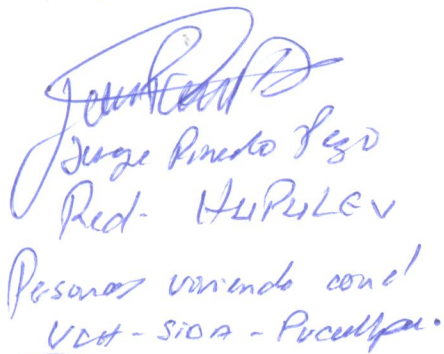 Jorge Pinedo
Red - HUPULEV
Pesonas viviendo con el
VCH - SIDA - Pucallpa.